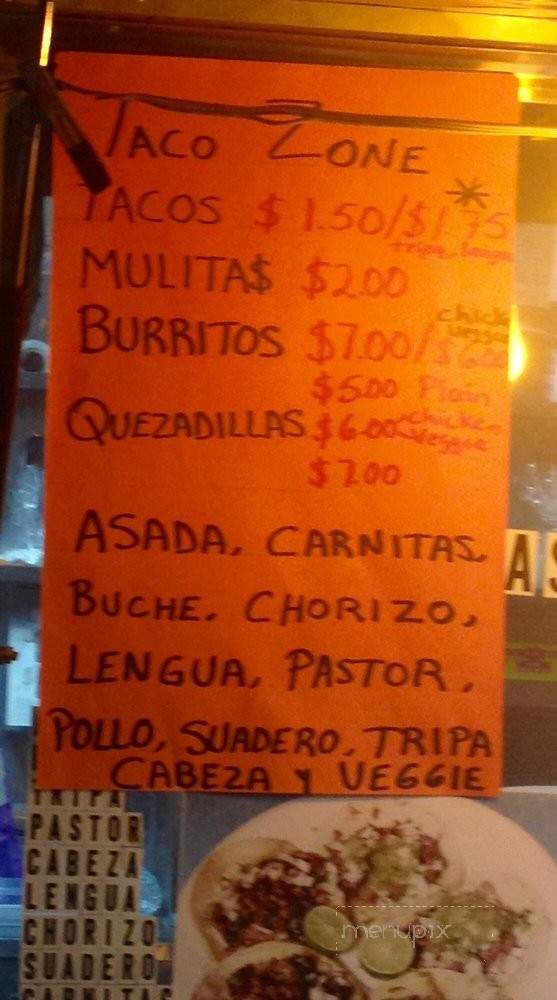 TACO ZONE
TACOS $1.50/$1.75*
tripa, lengua
MULITA$ $2.00
chick
veggie
BURRITOS $7.00/$6.00
$5.00 Plain
QUEZADILLAS $6.00 chicken
veggie
$7.00
ASADA, CARNITAS,
BUCHE, CHORIZO,
LENGUA, PASTOR,
POLLO, SUADERO, TRIPA
CABEZA y VEGGIE
AS
TRIPA
PASTOR
CABEZA
LENGUA
CHORIZO
SUADERO
CARNITAS
menupix